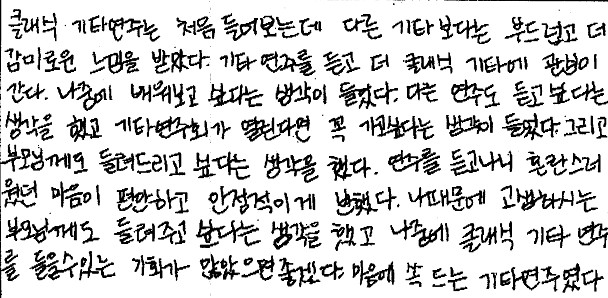 클래식 기타연주는 처음 들어보는데 다른 기타보다는 부드럽고 더
감미로운 느낌을 받았다. 기타 연주를 듣고 더 클래식 기타에 관심이
간다. 나중에 배워보고 싶다는 생각이 들었다. 다른 연주도 듣고 싶다는
생각을 했고 기타연주회가 열린다면 꼭 가고싶다는 생각이 들었다. 그리고
부모님께도 들려드리고 싶다는 생각을 했다. 연주를 듣고나니 혼란스러
웠던 마음이 편안하고 안정적이게 변했다. 나때문에 고생하시는
부모님께도 들려주고 싶다는 생각을 했고 나중에 클래식 기타 연주
를 들을수있는 기회가 많았으면좋겠다. 마음에 쏙 드는 기타연주였다